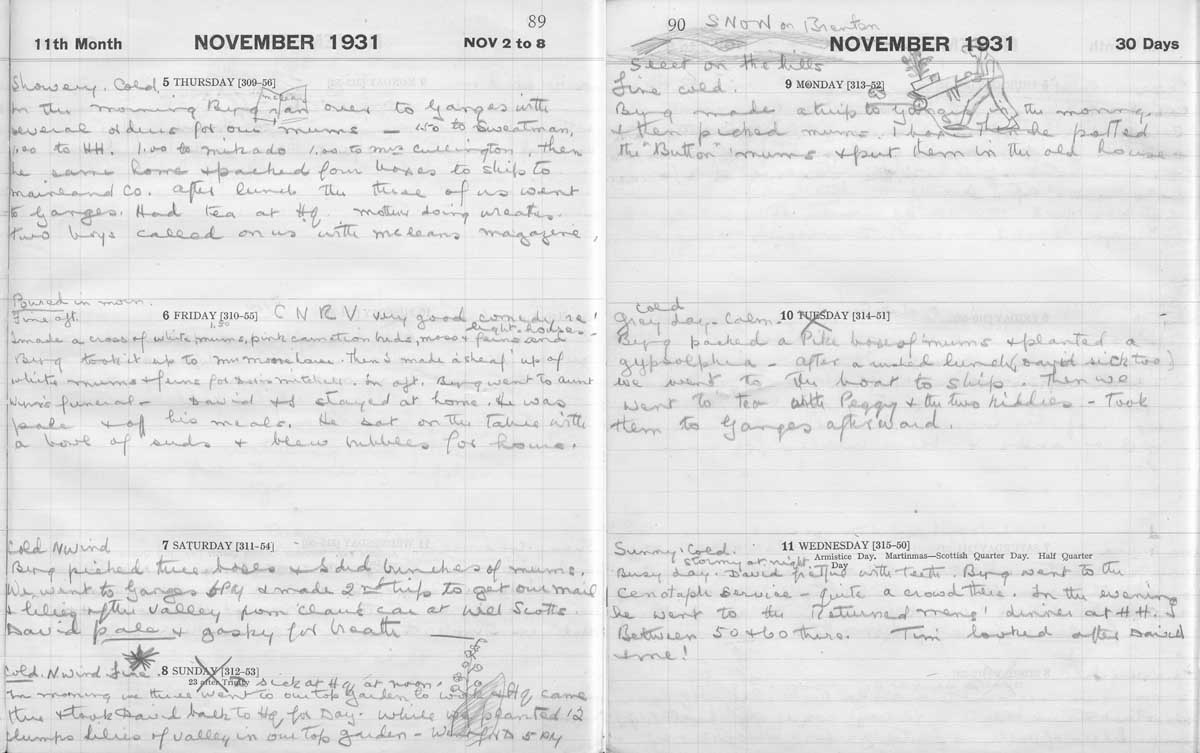 89
11th Month NOVEMBER 1931 NOV 2 to 8
Showery. Cold 5 THURSDAY [309–56]
In the morning Byng ran over to Ganges with
several orders for our mums — 1.50 to Sweatman,
1.00 to HH. 1.00 to mikado 1.00 to Mrs Cullington, then
he came home & packed four boxes to ship to
mainland Co. After lunch the three of us went
to Ganges. Had tea at Hq. mother doing wreaths.
Two boys called on us with mcleans magazine,
Poured in morn.
Fine aft. 6 FRIDAY [310–55] C N R V very good comedy re!
1.50 light-houses –
I made a cross of white mums, pink carnation buds, moss & ferns and
Byng took it up to Mrs Moorhouse. Then I made a sheaf up of
white mums & ferns for Mitchell. In aft. Byng went to Aunt
funeral – David & I stayed at home. He was
pale & off his meals. He sat on the table with
a bowl of suds & blew bubbles for hours.
Cold N Wind 7 SATURDAY [311–54]
Byng picked three boxes & I did bunches of mums.
We went to Ganges & made 2nd trip to get our mail
& lilies of the valley from at Scotts.
David pale & gaspy for breath
Cold. N Wind Fine 8 SUNDAY [312–53]
23 after Trinity sick at Hq at noon.
In morning we three went to our top garden to work & Hq came
thru & took David back to Hq for Day. While we planted 12
clumps lilies of valley in our top garden – 5 PM
90 SNOW on Brenton
NOVEMBER 1931 30 Days
Sleet on the hills
Fine cold. 9 MONDAY [313–52]
Byng made a trip to Ganges in the morning,
& then picked mums. Then he potted
the "Button" mums & put them in the old house
cold
Grey day. Calm. 10 TUESDAY [314–51]
Byng packed a Pike box of mums & planted a
gypsolphia – after a lunch (David sick too)
we went to the boat to ship. Then we
went to tea with Peggy & the two kiddies – Took
them to Ganges afterward.
Sunny. Cold. 11 WEDNESDAY [315–50]
Stormy at night. Armistice Day. Martinmas—Scottish Quarter Day. Half Quarter
Day
Busy day. David fretful with teeth. Byng went to the
Cenotaph Service – quite a crowd there. In the evening
he went to the Returned mens' dinner at HH.
Between 50 & 60 there. Tim looked after David
& me!